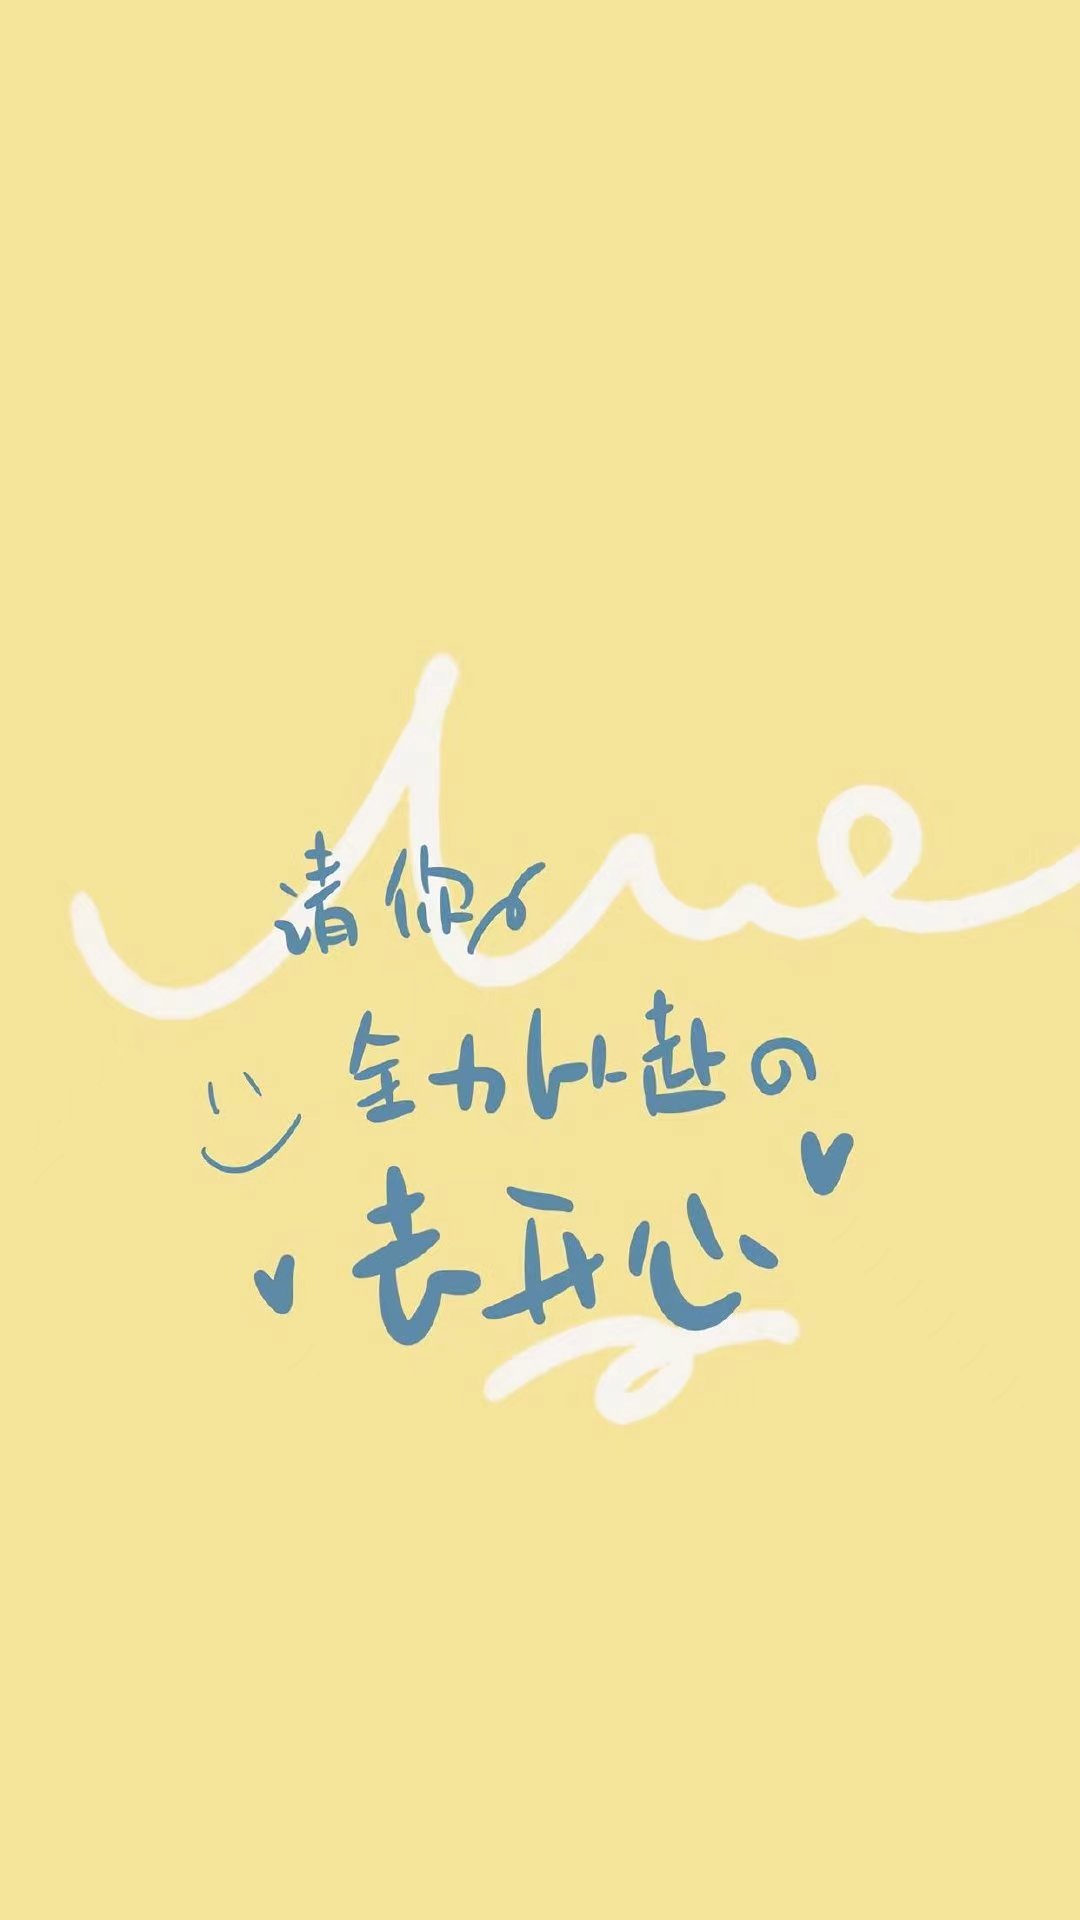 请你
全力以赴の
去开心